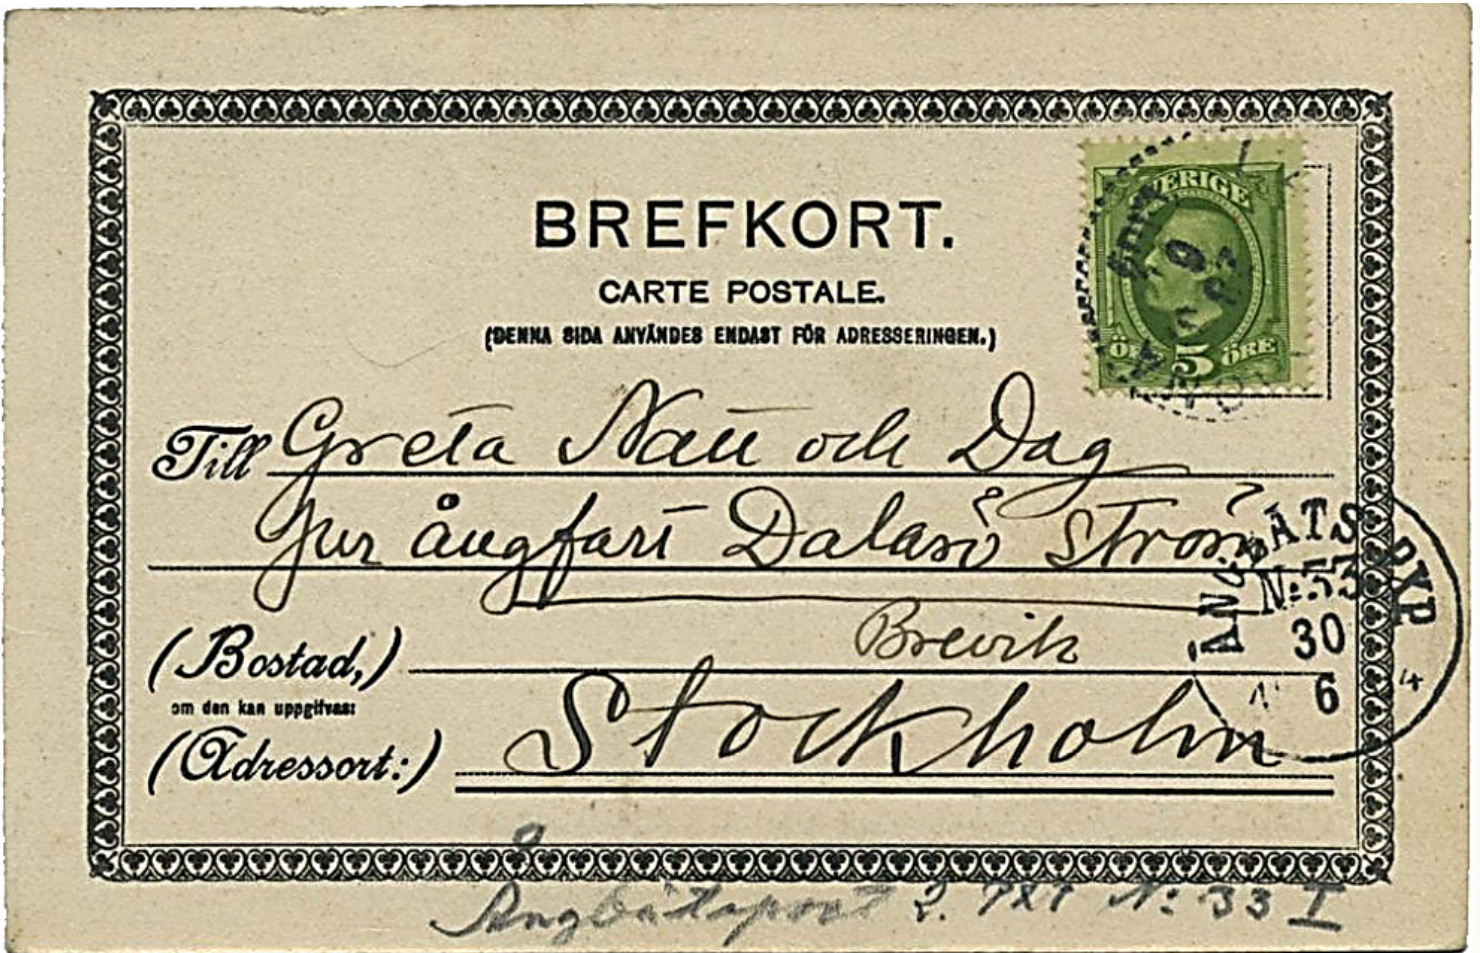 BREFKORT.
CARTE POSTALE.
(DENNA SIDA ANVÄNDES ENDAST FÖR ADRESSERINGEN.)
SVERIGE
ÖRE 5 ÖRE
Till Greta Natt och Dag
pr ångfart Dalarö Ström
Brevik
(Bostad,)
om den kan uppgifvas:
(Adressort:) Stockholm
ÅNGBÅTS PXP
No 33
30
6
Ångbåtspost 2. PXP No 33 I